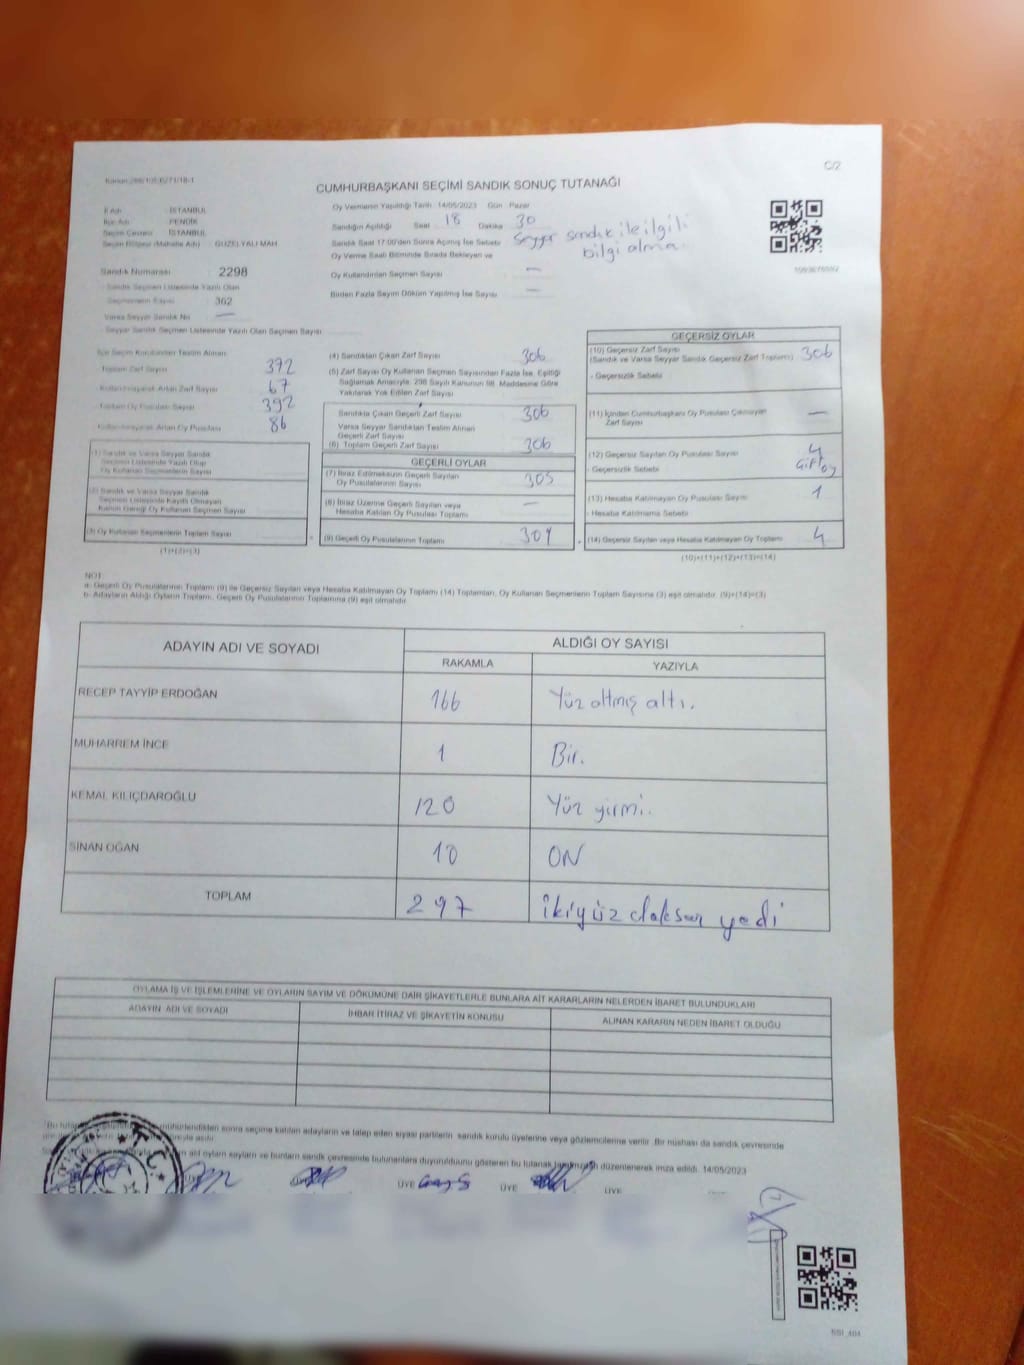 C/2
CUMHURBAŞKANI SEÇİMİ SANDIK SONUÇ TUTANAĞI
İl Adı : İSTANBUL
İlçe Adı : PENDİK
Seçim Çevresi : İSTANBUL
Seçim Bölgesi (Mahalle Adı) : GÜZELYALI MAH
Sandık Numarası : 2298
Sandık Seçmen Listesinde Yazılı Olan
Seçmenlerin Sayısı : 362
Varsa Seyyar Sandık No —
Seyyar Sandık Seçmen Listesinde Yazılı Olan Seçmen Sayısı
Oy Vermenin Yapıldığı Tarih 14/05/2023 Gün Pazar
Sandığın Açıldığı Saat 18 Dakika 30
Sandık Saat 17:00'den Sonra Açılmış İse Sebebi Seyyar sandık ile ilgili
bilgi alma
Oy Verme Saati Bitiminde Sırada Bekleyen ve
Oy Kullandırılan Seçmen Sayısı —
Birden Fazla Sayım Döküm Yapılmış İse Sayısı —
İlçe Seçim Kurulundan Teslim Alınan
Toplam Zarf Sayısı 372
Kullanılmayarak Artan Zarf Sayısı 67
Toplam Oy Pusulası Sayısı 392
Kullanılmayarak Artan Oy Pusulası 86
(1) Sandık ve Varsa Seyyar Sandık
Seçmen Listesinde Yazılı Olup
Oy Kullanan Seçmenlerin Sayısı
(2) Sandık ve Varsa Seyyar Sandık
Seçmen Listesinde Kayıtlı Olmayan
Kanun Gereği Oy Kullanan Seçmen Sayısı
(3) Oy Kullanan Seçmenlerin Toplam Sayısı
(1)+(2)=(3)
(4) Sandıktan Çıkan Zarf Sayısı 306
(5) Zarf Sayısı Oy Kullanan Seçmen Sayısından Fazla İse, Eşitliği
Sağlamak Amacıyla, 298 Sayılı Kanunun 98. Maddesine Göre
Yakılarak Yok Edilen Zarf Sayısı
Sandıkta Çıkan Geçerli Zarf Sayısı 306
Varsa Seyyar Sandıktan Teslim Alınan
Geçerli Zarf Sayısı
(6) Toplam Geçerli Zarf Sayısı 306
GEÇERLİ OYLAR
(7) İtiraz Edilmeksizin Geçerli Sayılan
Oy Pusulalarının Sayısı 305
(8) İtiraz Üzerine Geçerli Sayılan veya
Hesaba Katılan Oy Pusulası Toplamı —
(9) Geçerli Oy Pusulalarının Toplamı 301
GEÇERSİZ OYLAR
(10) Geçersiz Zarf Sayısı
(Sandık ve Varsa Seyyar Sandık Geçersiz Zarf Toplamı) 306
- Geçersizlik Sebebi
(11) İçinden Cumhurbaşkanı Oy Pusulası Çıkmayan
Zarf Sayısı —
(12) Geçersiz Sayılan Oy Pusulası Sayısı 4
- Geçersizlik Sebebi Çift oy
(13) Hesaba Katılmayan Oy Pusulası Sayısı 1
- Hesaba Katılmama Sebebi
(14) Geçersiz Sayılan veya Hesaba Katılmayan Oy Toplamı 4
(10)+(11)+(12)+(13)=(14)
NOT:
a- Geçerli Oy Pusulalarının Toplamı (9) ile Geçersiz Sayılan veya Hesaba Katılmayan Oy Toplamı (14) Toplamları, Oy Kullanan Seçmenlerin Toplam Sayısına (3) eşit olmalıdır. (9)+(14)=(3)
b- Adayların Aldığı Oyların Toplamı, Geçerli Oy Pusulalarının Toplamına (9) eşit olmalıdır.
ADAYIN ADI VE SOYADI
ALDIĞI OY SAYISI
RAKAMLA YAZIYLA
RECEP TAYYİP ERDOĞAN 166 Yüz altmış altı.
MUHARREM İNCE 1 Bir.
KEMAL KILIÇDAROĞLU 120 Yüz yirmi.
SİNAN OĞAN 10 ON
TOPLAM 297 ikiyüz doksan yedi
OYLAMA İŞ VE İŞLEMLERİNE VE OYLARIN SAYIM VE DÖKÜMÜNE DAİR ŞİKAYETLERLE BUNLARA AİT KARARLARIN NELERDEN İBARET BULUNDUKLARI
ADAYIN ADI VE SOYADI İHBAR İTİRAZ VE ŞİKAYETİN KONUSU ALINAN KARARIN NEDEN İBARET OLDUĞU
mühürlendikten sonra seçime katılan adayların ve talep eden siyasi partilerin sandık kurulu üyelerine veya gözlemcilerine verilir. Bir nüshası da sandık çevresinde
düzenlenerek imza edildi. 14/05/2023
T.C.
ÜYE ÜYE ÜYE